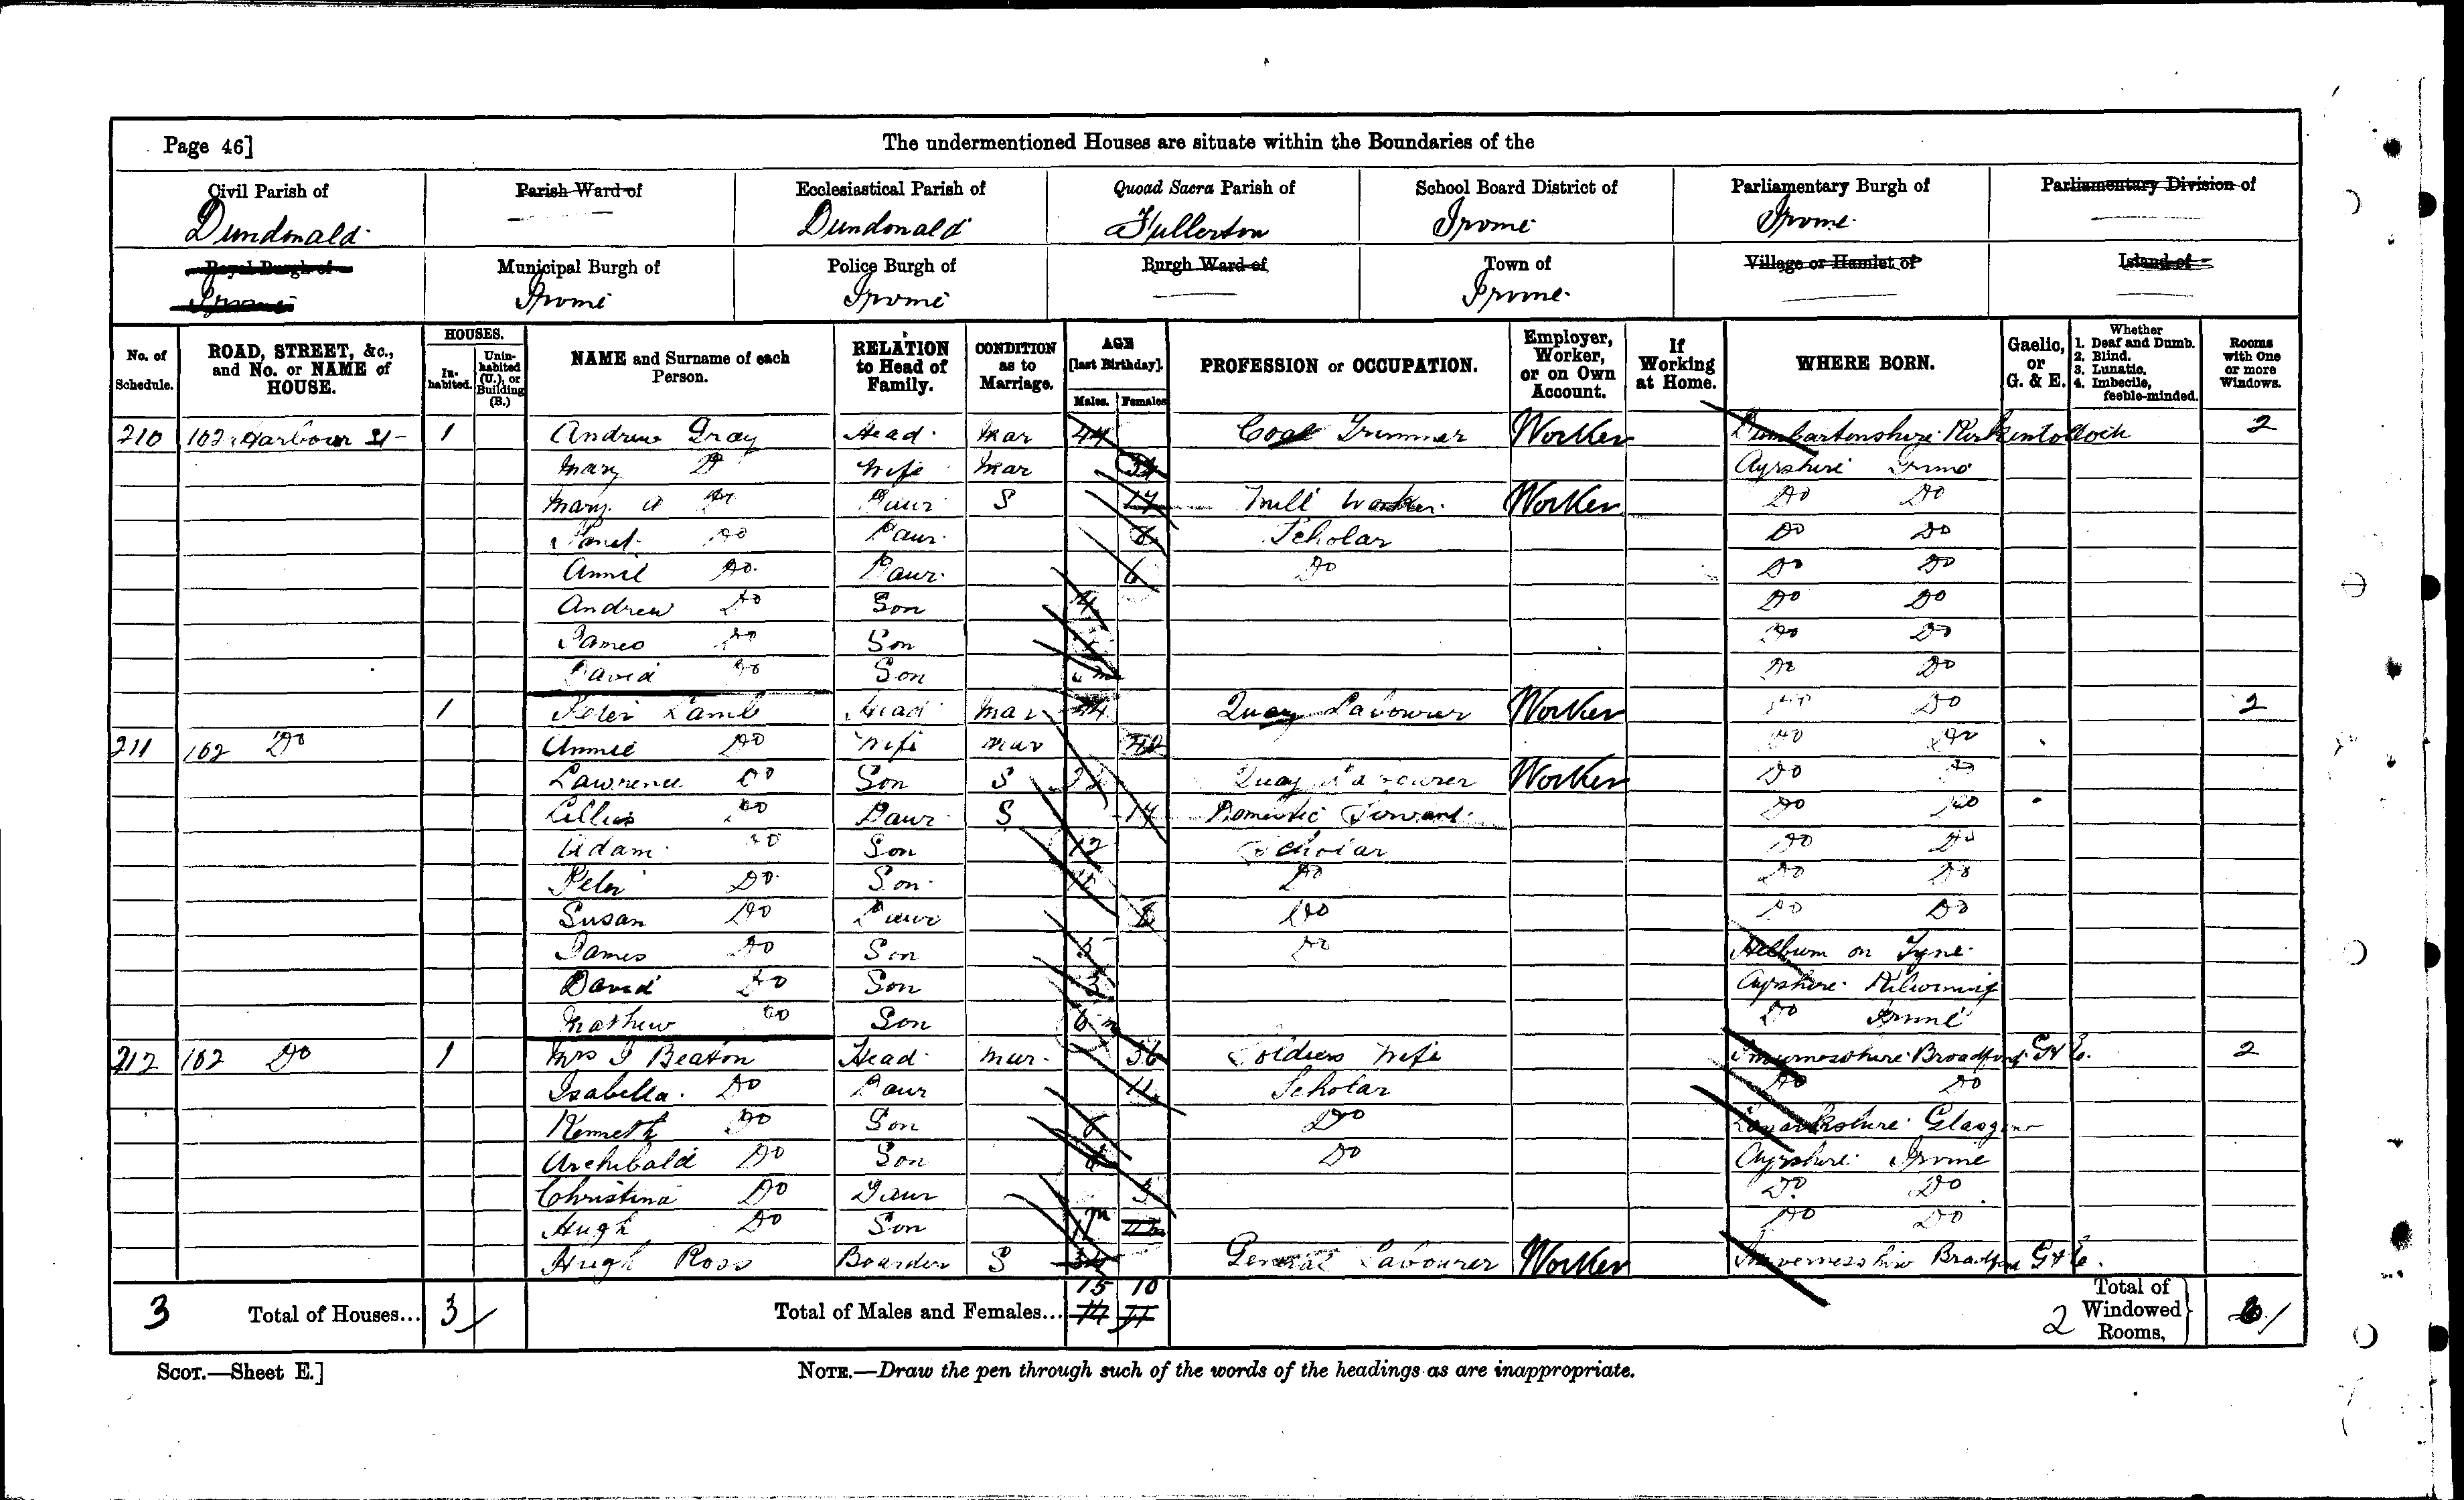 Page 46]
The undermentioned Houses are situate within the Boundaries of the
Civil Parish of Dundonald
Parish Ward of
Ecclesiastical Parish of Dundonald
Quoad Sacra Parish of Fullerton
School Board District of Irvine
Parliamentary Burgh of Irvine
Parliamentary Division of
Royal Burgh of Irvine
Municipal Burgh of Irvine
Police Burgh of Irvine
Burgh Ward of
Town of Irvine
Village or Hamlet of
Island of
No. of Schedule.
ROAD, STREET, &c., and No. or NAME of HOUSE.
HOUSES.
Inhabited.
Uninhabited (U.), or Building (B.)
NAME and Surname of each Person.
RELATION to Head of Family.
CONDITION as to Marriage.
AGE [last Birthday].
Males.
Females
PROFESSION or OCCUPATION.
Employer, Worker, or on Own Account.
If Working at Home.
WHERE BORN.
Gaelic, or G. & E.
Whether 1. Deaf and Dumb. 2. Blind. 3. Lunatic. 4. Imbecile, feeble-minded.
Rooms with One or more Windows.
210 162 Harbour St 1 Andrew Gray Head Mar 44 Coal Trimmer Worker Dumbartonshire Kirkintolloch 2
Mary Do Wife Mar Ayrshire Irvine
Mary A Do Daur S 17 Mill Worker Worker Do Do
Janet Do Daur 8 Scholar Do Do
Annie Do Daur 6 Do Do Do
Andrew Do Son 4 Do Do
James Do Son Do Do
David Do Son Do Do
1 Peter Lamb Head Mar 44 Quay Labourer Worker Do Do 2
211 162 Do Annie Do Wife Mar 42 Do Do
Lawrence Do Son S Quay Labourer Worker Do Do
Lillias Do Daur S 14 Domestic Servant Do Do
Adam Do Son 12 Scholar Do Do
Peter Do Son Do Do Do
Susan Do Daur 8 Do Do Do
James Do Son 5 Do Hebburn on Tyne
David Do Son 3 Ayrshire Kilwinning
Mathew Do Son 6 m Do Irvine
212 162 Do 1 Mrs J Beaton Head Mar 36 Soldiers Wife Invernessshire Broadford G & E. 2
Isabella Do Daur 11 Scholar Do Do
Kenneth Do Son 8 Do Lanarkshire Glasgow
Archibald Do Son Do Ayrshire Irvine
Christina Do Daur 3 Do Do
Hugh Do Son Do Do
Hugh Ross Boarder S General Labourer Worker Invernesshire G & E.
3 Total of Houses... 3
Total of Males and Females... 15 10
14 11
2 Total of Windowed Rooms, 6
SCOT.—Sheet E.]
NOTE.—Draw the pen through such of the words of the headings as are inappropriate.